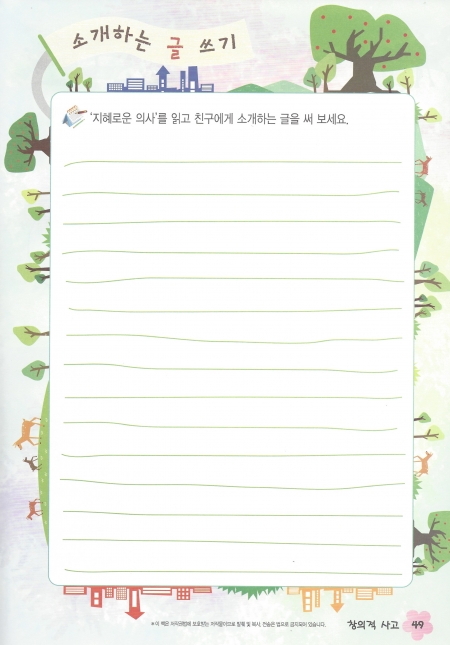 소개하는 글 쓰기
'지혜로운 의사'를 읽고 친구에게 소개하는 글을 써 보세요.
※이 책은 저작권법에 보호받는 저작물이므로 발췌 및 복사, 전송은 법으로 금지되어 있습니다.
창의적 사고 49